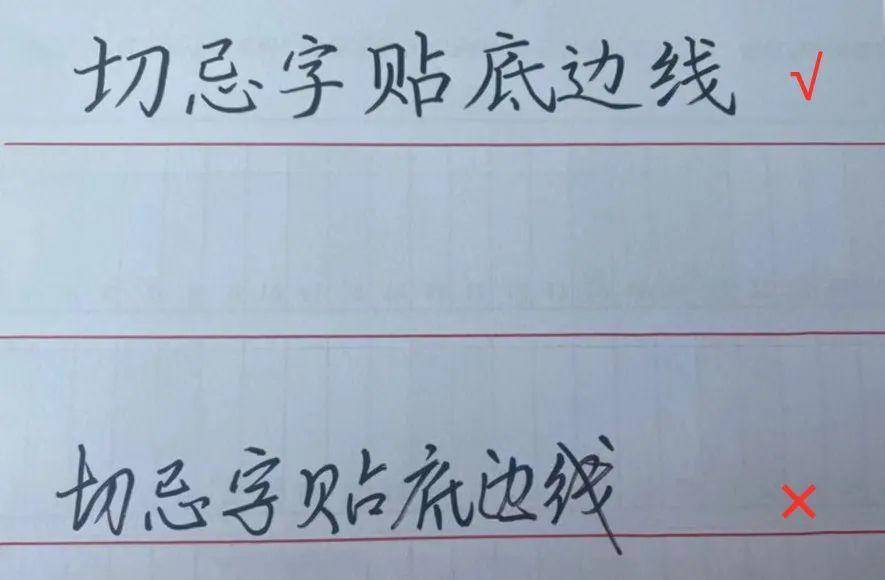 切忌字贴底边线 √
切忌字贴底边线 ×